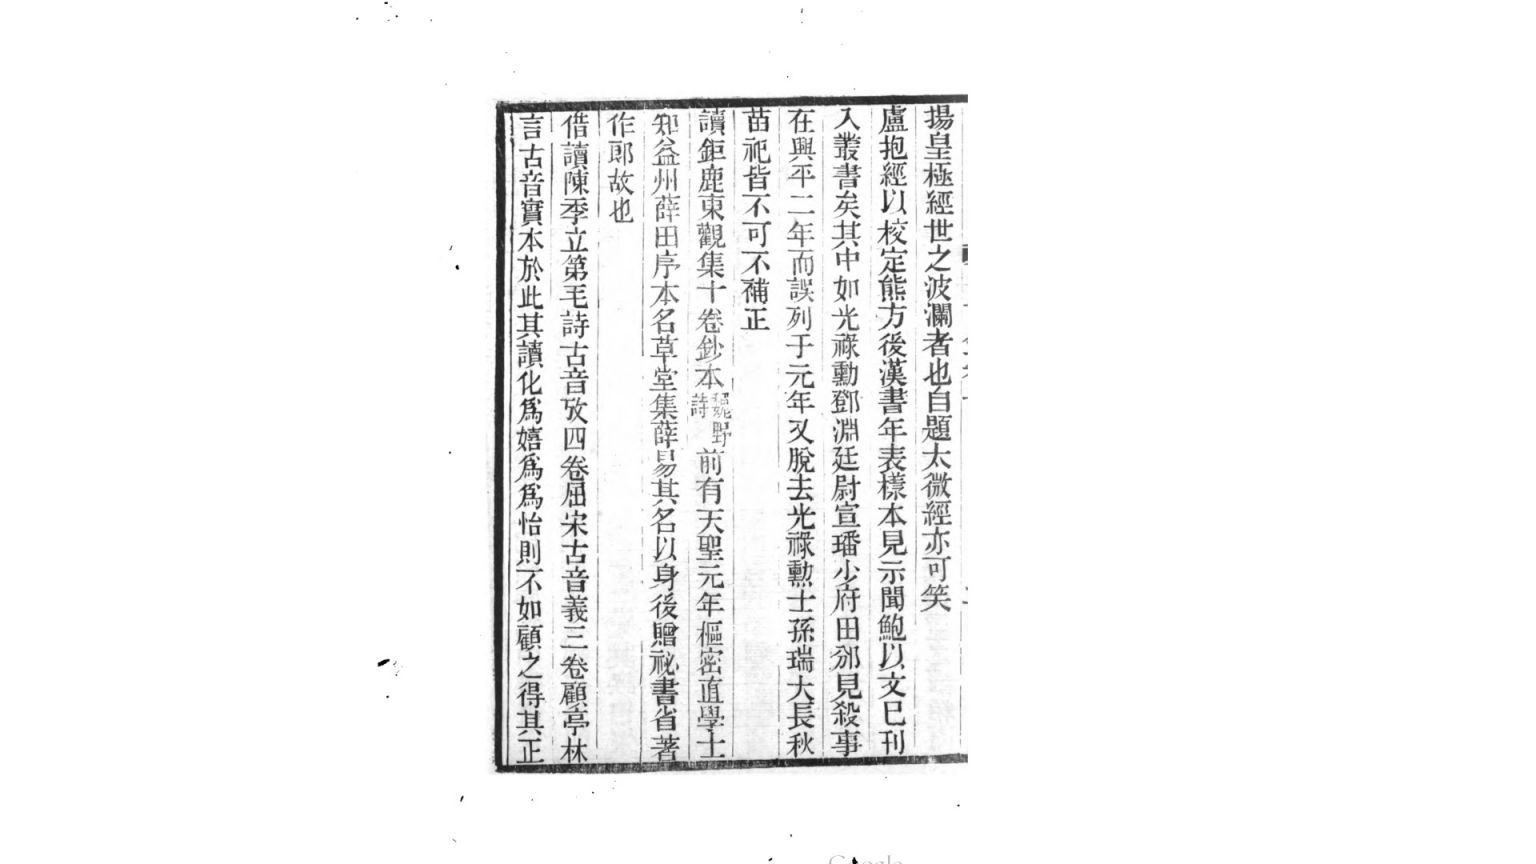 揚皇極經世之波瀾者也自題太微經亦可笑
盧抱經以校定熊方後漢書年表樣本見示聞鮑以文已刊
入叢書矣其中如光祿勳鄧淵廷尉宣璠少府田邠見殺事
在興平二年而誤列于元年又脫去光祿勲士孫瑞大長秋
苗祀皆不可不補正
讀鉅鹿東觀集十卷鈔本魏野詩前有天聖元年樞密直學士
知益州薛田序本名草堂集薛易其名以身後贈祕書省著
作郎故也
借讀陳季立第毛詩古音攷四卷屈宋古音義三卷顧亭林
言古音實本於此其讀化爲嬉爲爲怡則不如顧之得其正